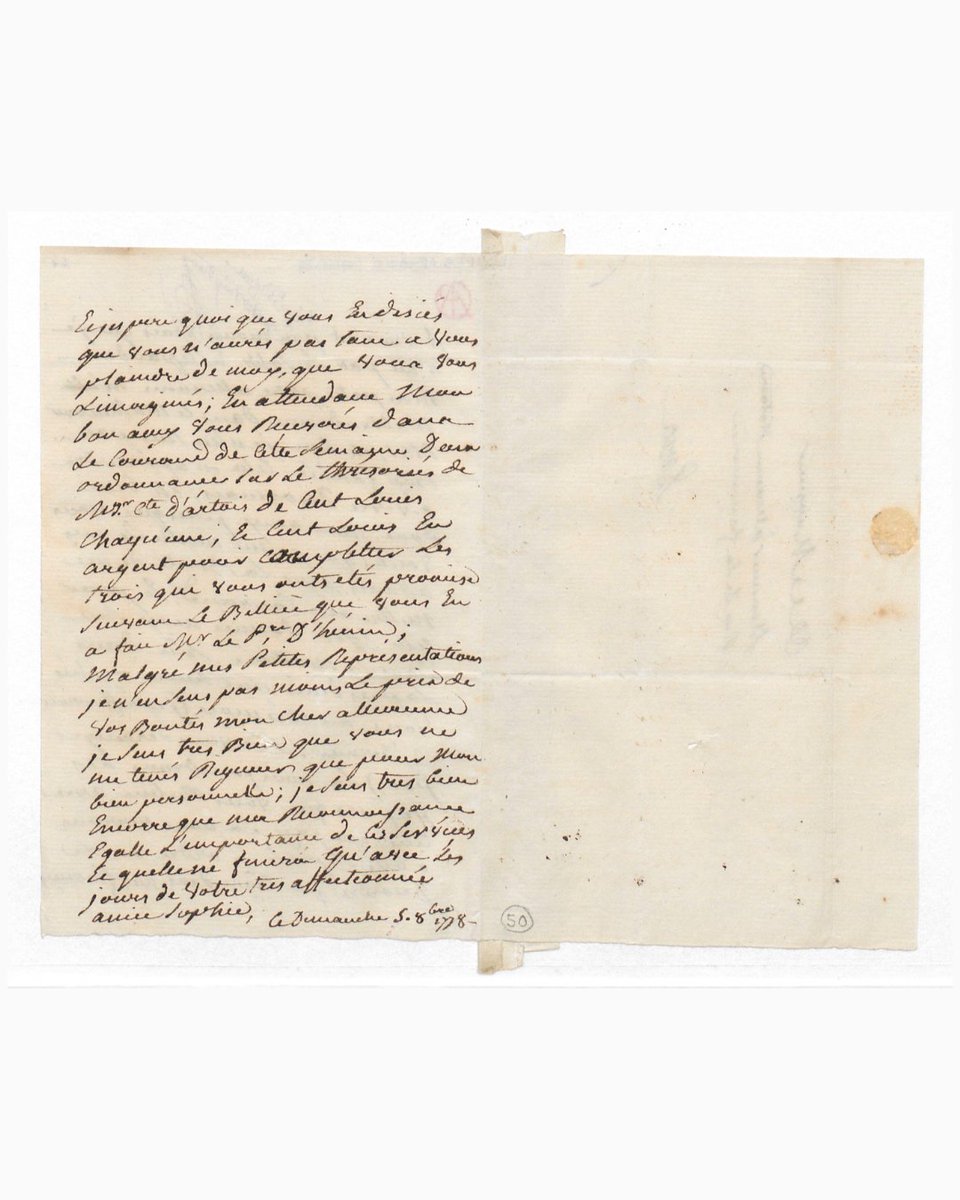 Et jespere quoi que vous En disiés
que vous n'aurés pas tant a vous
plaindre de moy, que vous vous
Limaginés; En attendant Mon
bon amy vous Recevrés dans
Le Courand de Cette Semaine Deux
ordonnances sur Le thresorié de
Mgr. Cte d'artois de Cent Louis
Chaqu'une, Et Cent Louis En
argent pour Completter Les
trois qui vous onts etés promise
suivant Le Billiet que vous En
a fait Mr Le Pce D'hénin;
Malgré mes Petites Representations
je n'en sens pas moins Le prix de
vos Bontés mon cher
je sens tres Bien que vous ne
me tenés Rigueur que pour Mon
bien personnelle; je sens tres bien
Encorre que ma Reconnoissance
Egalle L'importance de Ces Services
Et quelle ne finira Qu'avec Les
jours de Votre tres affectionnée
amie Sophie, Ce Dimanche 5. 8bre
1778-
50